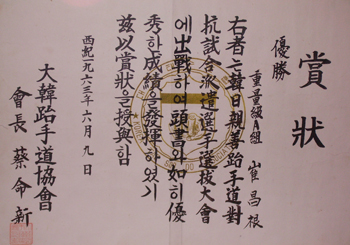 賞狀
優勝
重量級A組 崔昌根
右者는韓日親善跆手道對
抗試合派遣選手選拔大會
에出戰하여頭書와如히優
秀한成績을發揮하였기
玆以賞狀을授與함
西紀一九六三年六月九日
大韓跆手道協會
會長 蔡命新